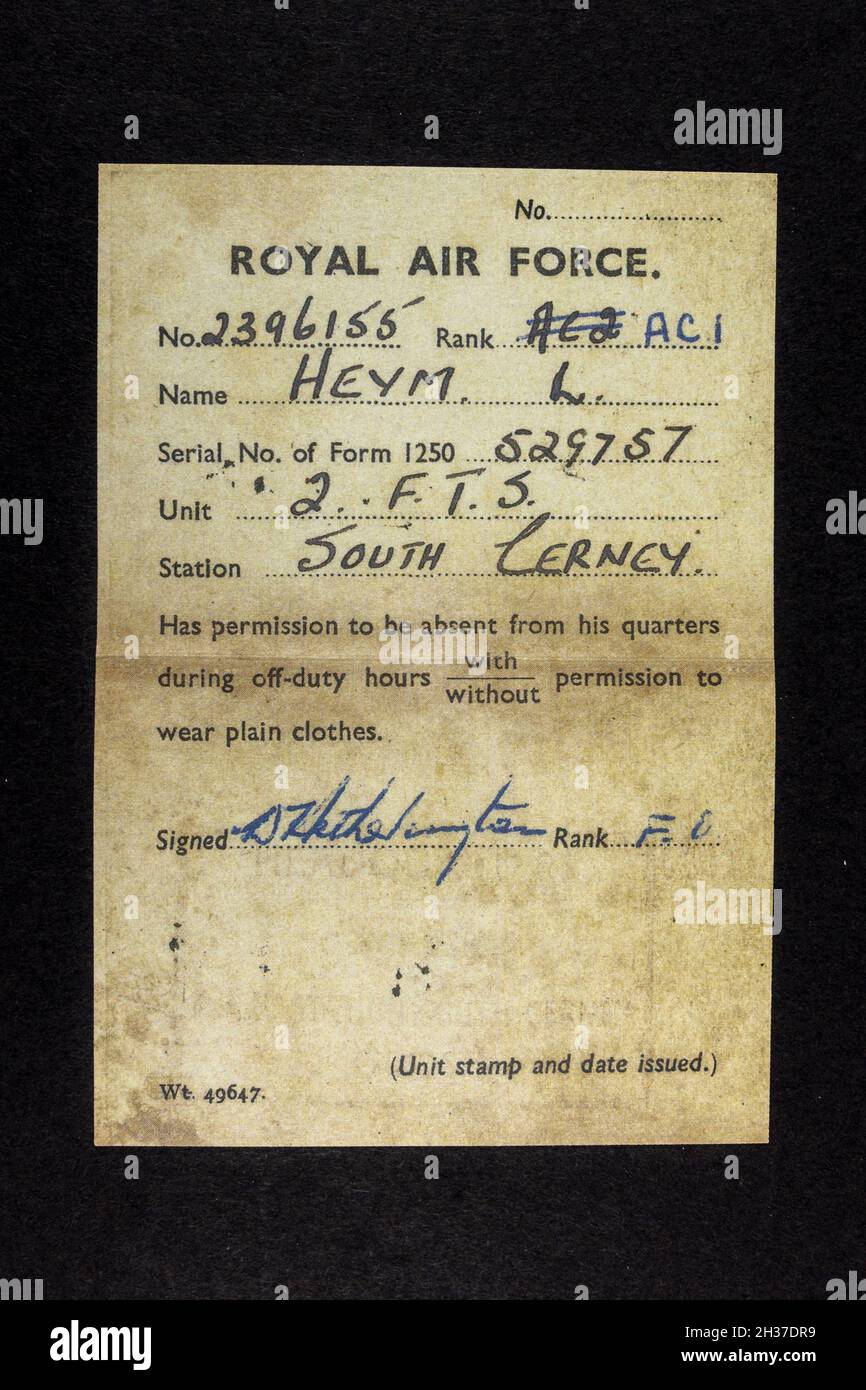 No.
ROYAL AIR FORCE.
No. 2396155 Rank AC2 AC1
Name HEYM. L.
Serial No. of Form 1250 529757
Unit 2. F.T.S.
Station SOUTH CERNEY.
Has permission to be absent from his quarters
during off-duty hours with/without permission to
wear plain clothes.
Signed Rank
(Unit stamp and date issued.)
Wt. 49647.
alamy
Image ID: 2H37DR9
www.alamy.com